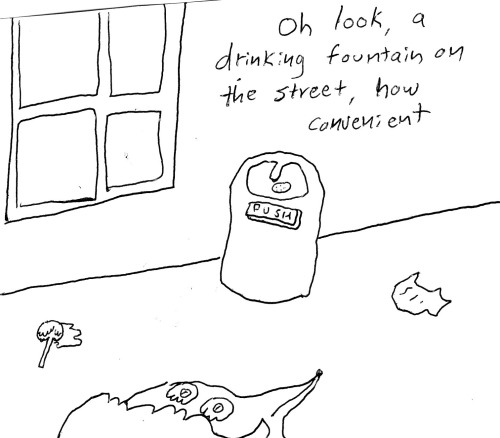 Oh look, a
drinking fountain on
the street, how
convenient
PUSH